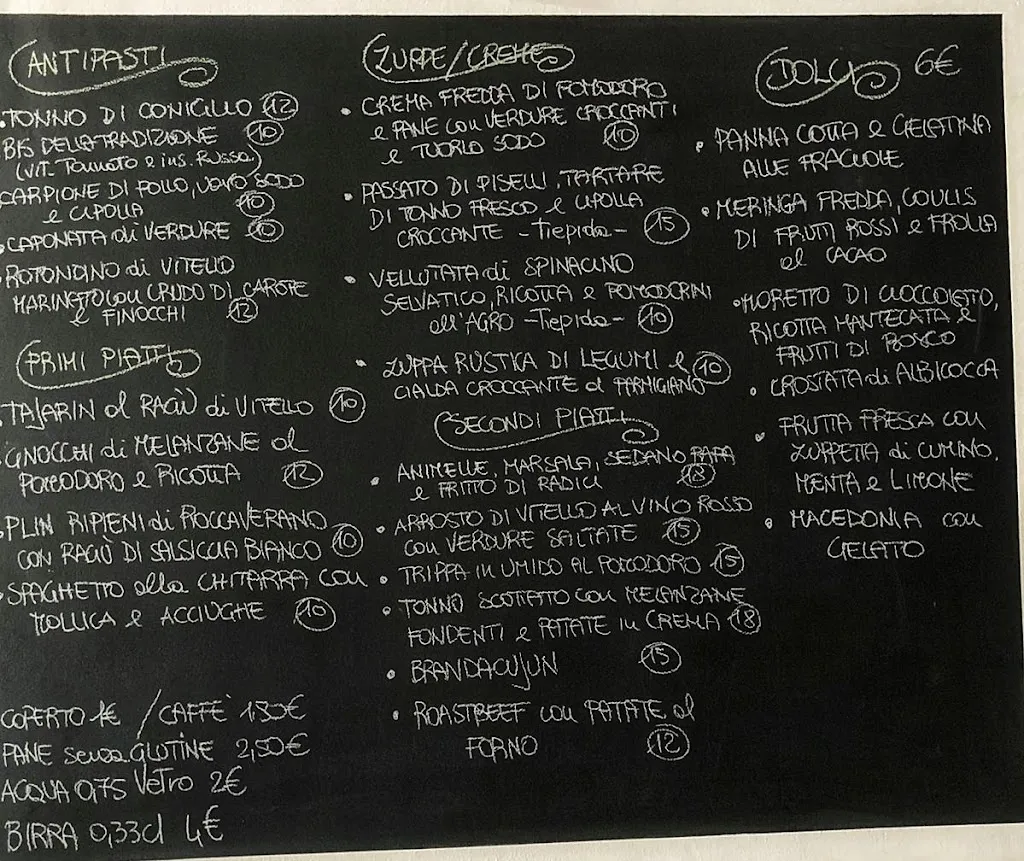 ANTIPASTI
• TONNO DI CONIGLIO 12
BIS DELLA TRADIZIONE 10
(VIT. Tonnato e ins. Russa)
CARPIONE DI POLLO, UOVO SODO
e CIPOLLA 10
• CAPONATA di VERDURE 10
• ROTONDINO di VITELLO
MARINATO con CRUDO DI CAROTE
e FINOCCHI 12
PRIMI PIATTI
• TAJARIN al RAGÙ di VITELLO 10
GNOCCHI di MELANZANE al
POMODORO e RICOTTA 12
• PLIN RIPIENI di ROCCAVERANO
CON RAGÙ DI SALSICCIA BIANCO 10
• SPAGHETTO alla CHITARRA con
MOLLICA e ACCIUGHE 10
COPERTO 1€ / CAFFÈ 1,30€
PANE senza GLUTINE 2,50€
ACQUA 0,75 Vetro 2€
BIRRA 0,33cl 4€
ZUPPE/CREME
• CREMA FREDDA DI POMODORO
e PANE con VERDURE CROCCANTI
e TUORLO SODO 10
• PASSATO DI PISELLI, TARTARE
DI TONNO FRESCO e CIPOLLA
CROCCANTE -Tiepida- 15
• VELLUTATA di SPINACINO
SELVATICO, RICOTTA e POMODORINI
all'AGRO -Tiepida- 10
• ZUPPA RUSTICA DI LEGUMI e 10
CIALDA CROCCANTE al PARMIGIANO
SECONDI PIATTI
• ANIMELLE, MARSALA, SEDANO RAPA
e FRITTO DI RADICI 18
• ARROSTO DI VITELLO AL VINO ROSSO
con VERDURE SALTATE 15
• TRIPPA in UMIDO AL POMODORO 15
• TONNO SCOTTATO con MELANZANE
FONDENTI e PATATE in CREMA 18
• BRANDACUJUN 15
• ROASTBEEF con PATATE al
FORNO 12
DOLCI 6€
• PANNA COTTA e GELATINA
ALLE FRAGOLE
• MERINGA FREDDA, COULIS
DI FRUTTI ROSSI e FROLLA
al CACAO
• MORETTO DI CIOCCOLATO,
RICOTTA MANTECATA e
FRUTTI DI BOSCO
• CROSTATA di ALBICOCCA
• FRUTTA FRESCA con
ZUPPETTA di CUMINO,
MENTA e LIMONE
• MACEDONIA con
GELATO